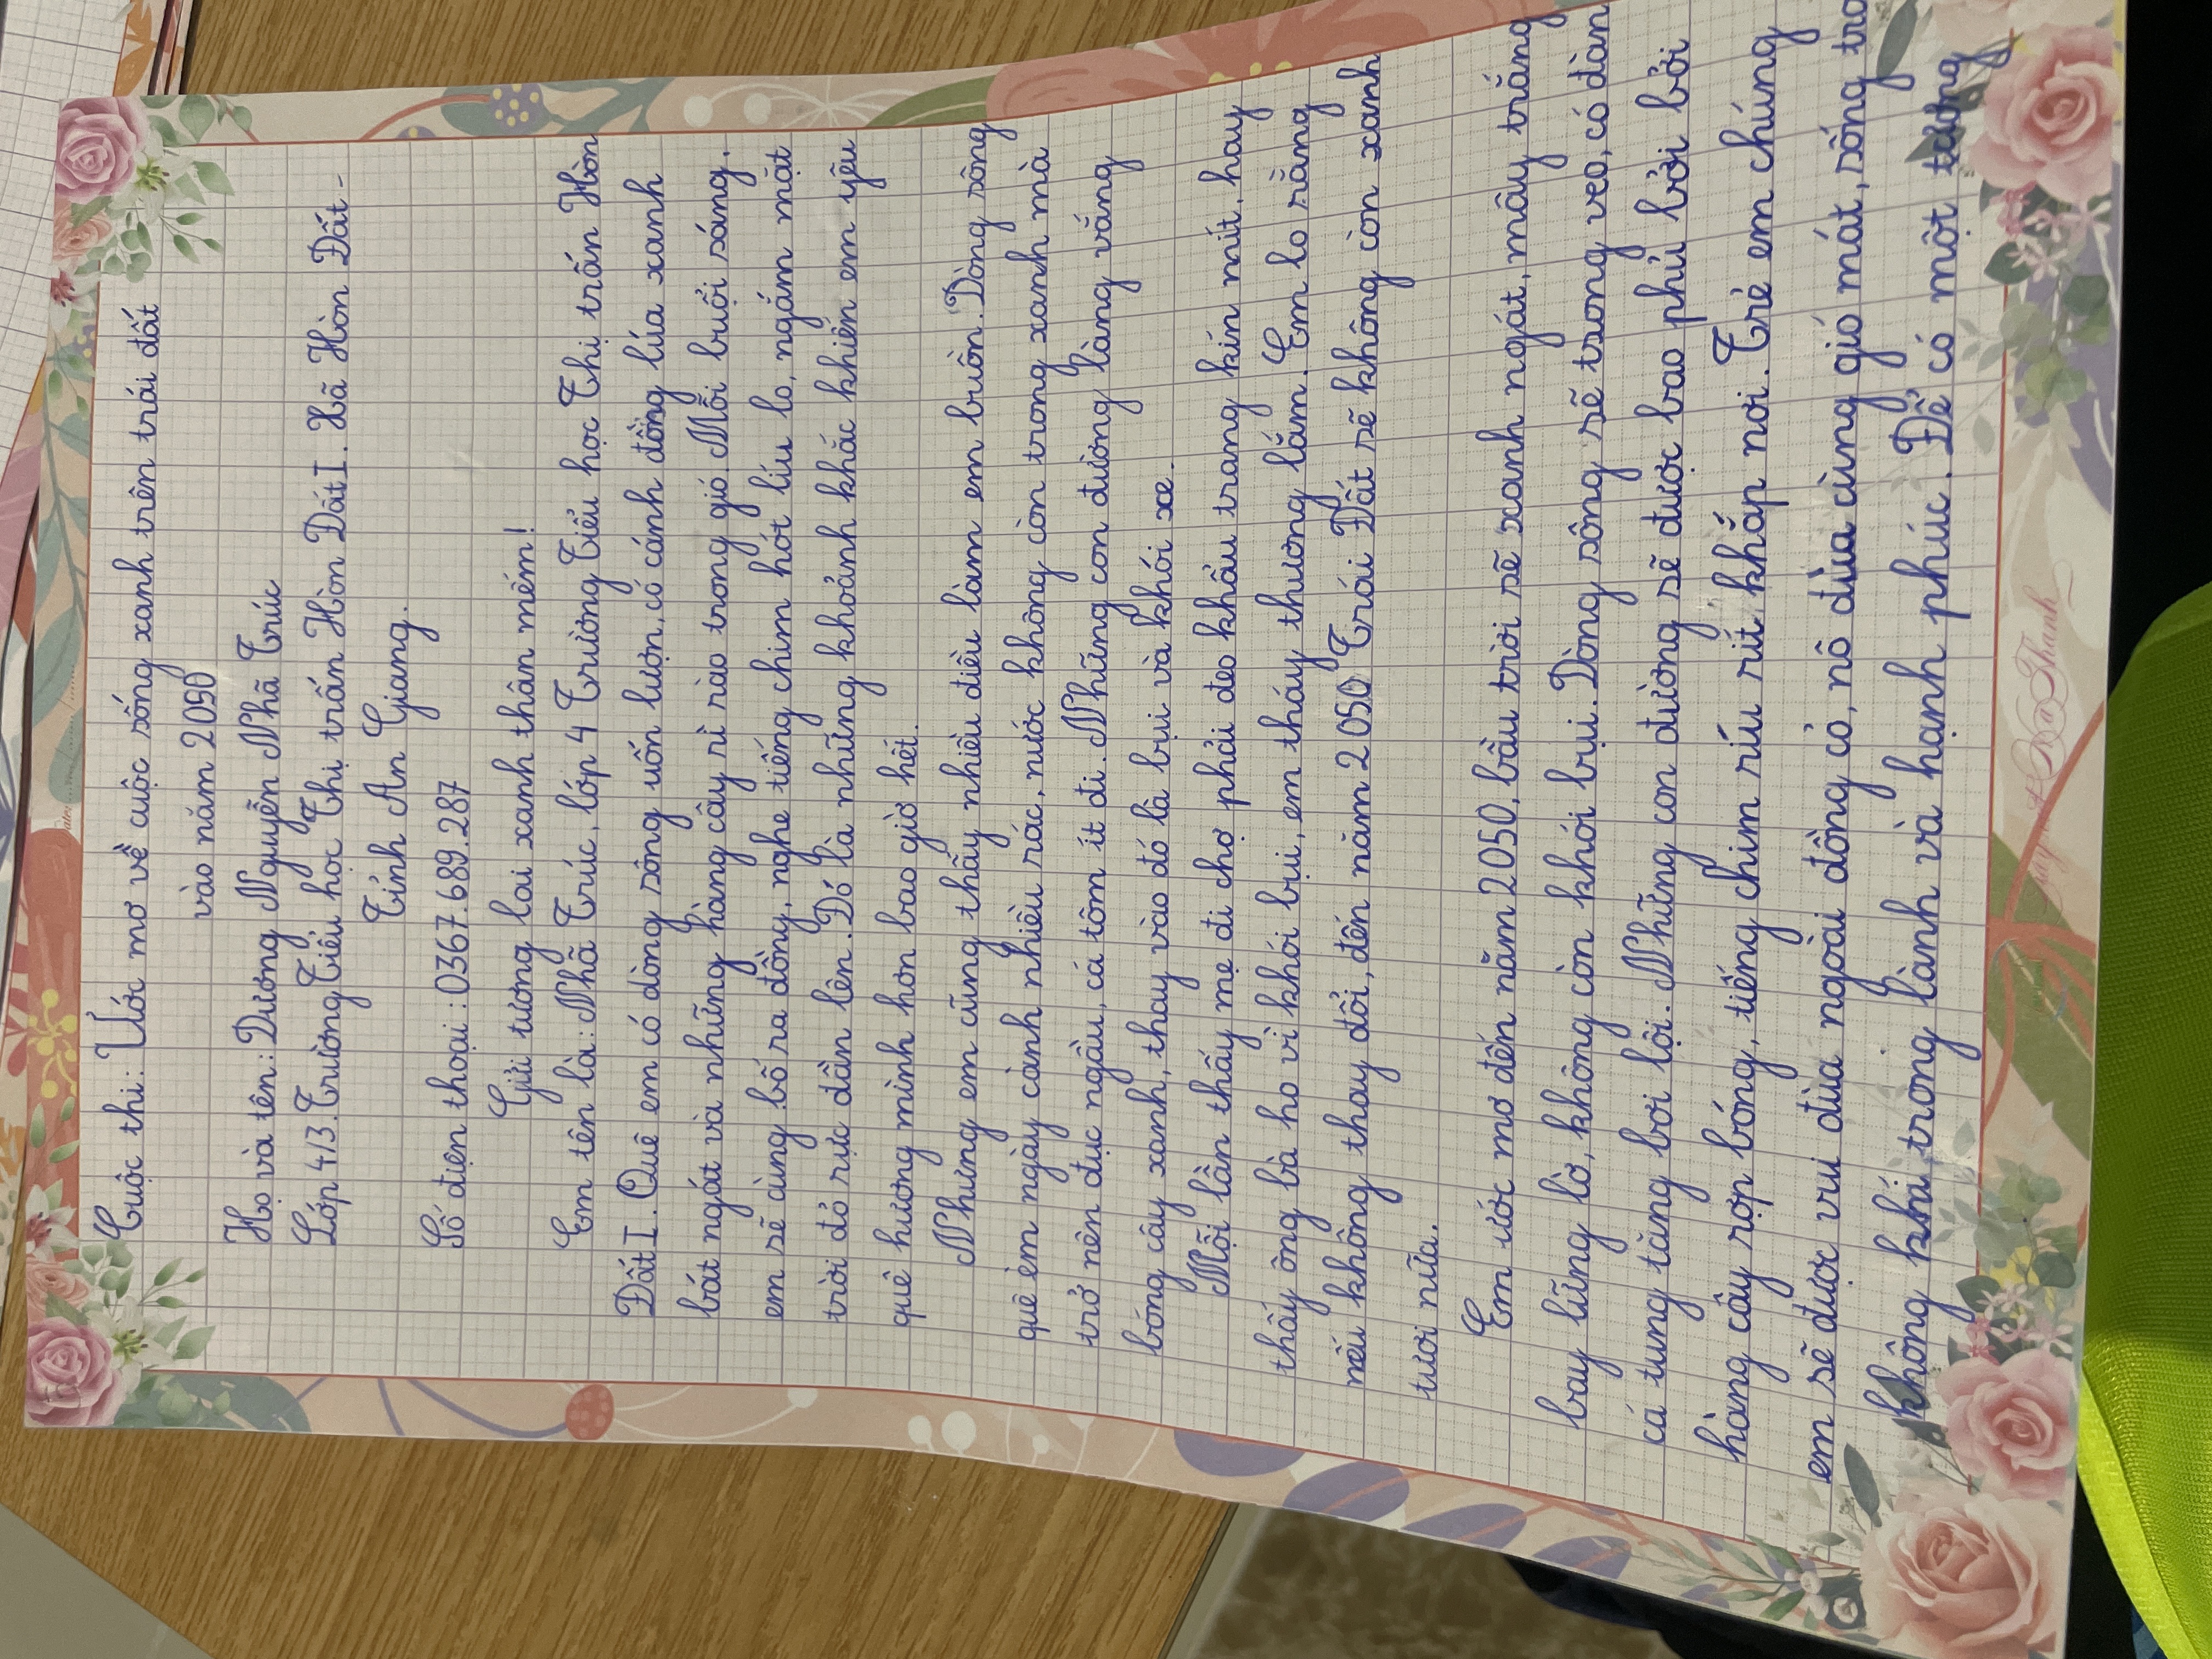 Cuộc thi: Ước mơ về cuộc sống xanh trên trái đất
vào năm 2050
Họ và tên: Dương Nguyễn Nhã Trúc
Lớp 4/3. Trường Tiểu học Thị trấn Hòn Đất I. Xã Hòn Đất -
Tỉnh An Giang.
Số điện thoại: 0367.689.287
Gửi tương lai xanh thân mến!
Em tên là: Nhã Trúc, lớp 4 Trường Tiểu học Thị trấn Hòn
Đất I. Quê em có dòng sông uốn lượn, có cánh đồng lúa xanh
bát ngát và những hàng cây rì rào trong gió. Mỗi buổi sáng,
em sẽ cùng bố ra đồng, nghe tiếng chim hót líu lo, ngắm mặt
trời đỏ rực dần lên. Đó là những khoảnh khắc khiến em yêu
quê hương mình hơn bao giờ hết.
Nhưng em cũng thấy nhiều điều làm em buồn. Dòng sông
quê em ngày cành nhiều rác, nước không còn trong xanh mà
trở nên đục ngầu, cá tôm ít đi. Những con đường làng vắng
bóng cây xanh, thay vào đó là bụi và khói xe.
Mỗi lần thấy mẹ đi chợ phải đeo khẩu trang kín mít, hay
thấy ông bà ho vì khói bụi, em tháy thương lắm. Em lo rằng
nếu không thay đổi, đến năm 2050 Trái Đất sẽ không còn xanh
tươi nữa.
Em ước mơ đến năm 2050, bầu trời sẽ xanh ngát, mây trắng
bay lững lờ, không còn khói bụi. Dòng sông sẽ trong veo, có đàn
cá tung tăng bơi lội. Những con đường sẽ được bao phủ bởi bởi
hàng cây rợp bóng, tiếng chim ríu rít khắp nơi. Trẻ em chúng
em sẽ được vui đùa ngoài đồng cỏ, nô đùa cùng gió mát, sống tro
không khí trong lành và hạnh phúc. Để có một tương